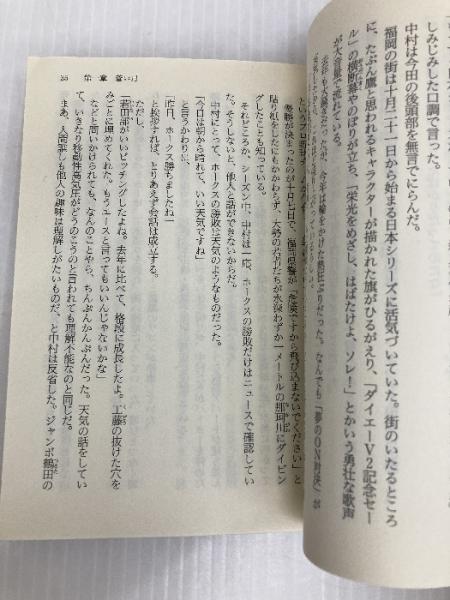 しみじみした口調で言った。
中村は今田の後頭部を無言でにらんだ。
福岡の街は十月二十一日から始まる日本シリーズに活気づいていた。街のいたるところ
に、たぶん鷹と思われるキャラクターが描かれた旗がひるがえり、「ダイエーV2記念セー
ル」の横断幕やのぼりが立ち、「栄光をめざし、はばたけよ、ソレ!」とかいう勇壮な歌声
が大音量で流れている。
去年も大騒ぎだったが、今年は輪をかけた熱狂ぶりだった。なんでも「夢のON対決」が
というプロ野球
優勝が決まったのが十月七日で、福岡県警が「危険ですから飛び込まないでください」と
貼り紙をしたにもかかわらず、大勢の若者たちが水深わずか一メートルの那珂川にダイビン
グしたことも知っている。
それどころか、シーズン中、中村は一応、ホークスの勝敗だけはニュースで確認してい
た。そうしないと、他人と話ができないからだ。
中村にとって、ホークスの勝敗は天気のようなものだった。
「今日は朝から晴れて、いい天気ですね」
「昨日、ホークス勝ちましたね」
と挨拶すれば、とりあえず会話は成立する。
ただし、
「若田部がいいピッチングしたよね。去年に比べて、格段に成長したよ。工藤の抜けた穴を
みごとに埋めてくれた。もうエースと言ってもいいんじゃないかな」
などと問いかけられても、なんのことやら、ちんぷんかんぷんだった。天気の話をしてい
て、いきなり移動性高気圧がどうのこうのと言われても理解不能なのと同じだ。
まあ、人間誰しも他人の趣味は理解しがたいものだ、と中村は反省した。ジャンボ鶴田の
25 第一章